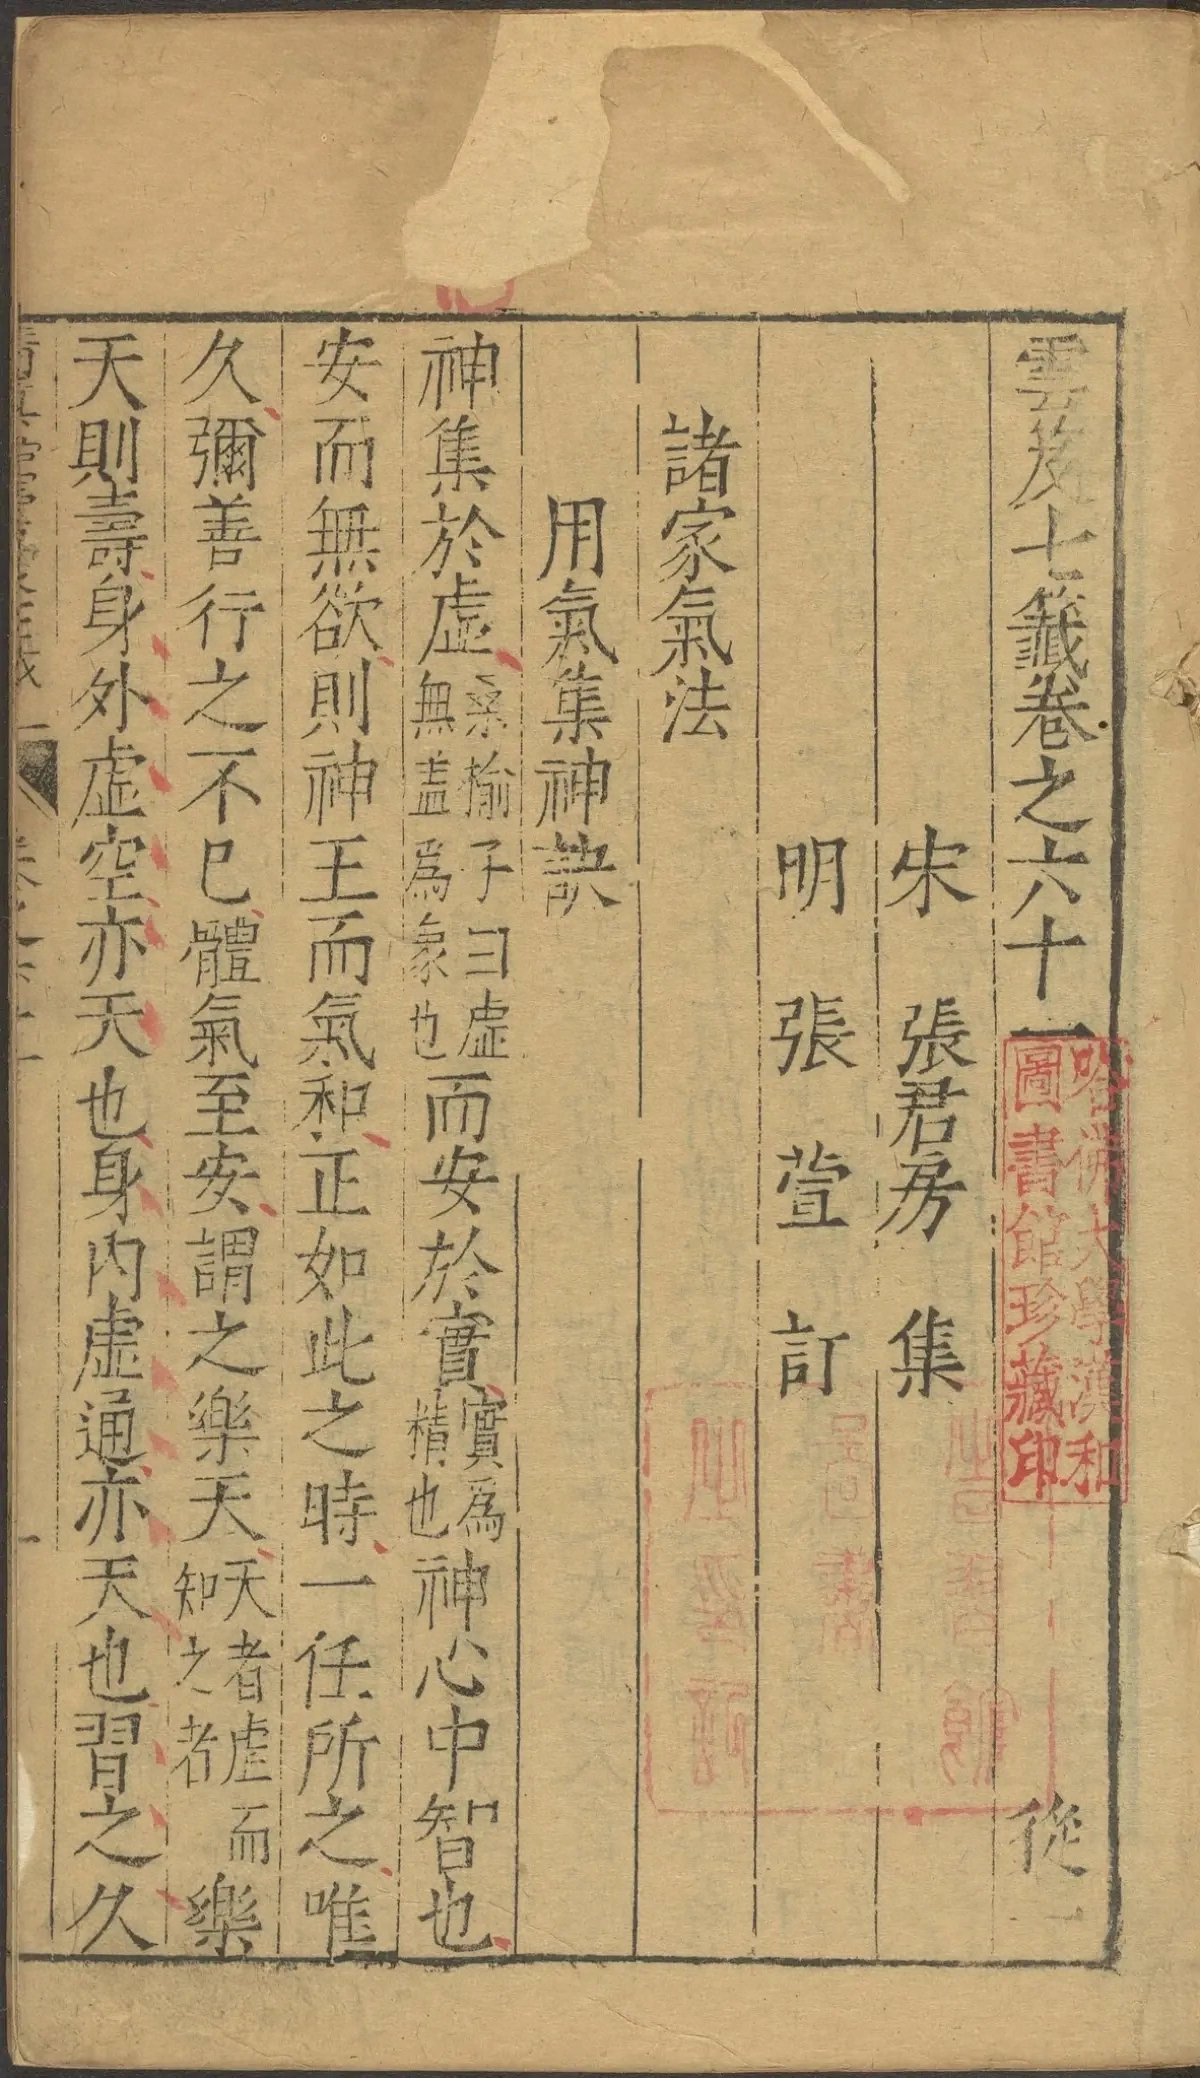 雲笈七籤卷之六十一 從一
宋 張君房 集
明 張萱 訂
諸家氣法
用氣集神訣
神集於虛桑榆子曰虛無盖爲象也而安於實實爲精也神心中智也
安而無欲則神王而氣和正如此之時一任所之唯
久彌善行之不已體氣至安謂之樂天天者虛而知之者樂
天則壽身外虛空亦天也身內虛通亦天也習之久
哈佛大學漢和
圖書館珍藏印